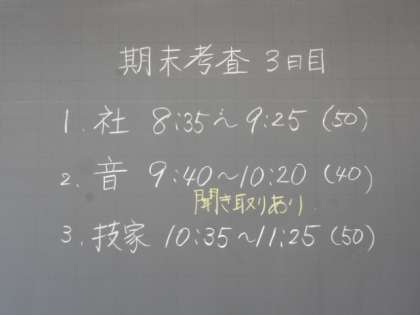 期末考査 3日目
1. 社 8:35〜9:25 (50)
2. 音 9:40〜10:20 (40)
聞き取りあり
3. 技家 10:35〜11:25 (50)